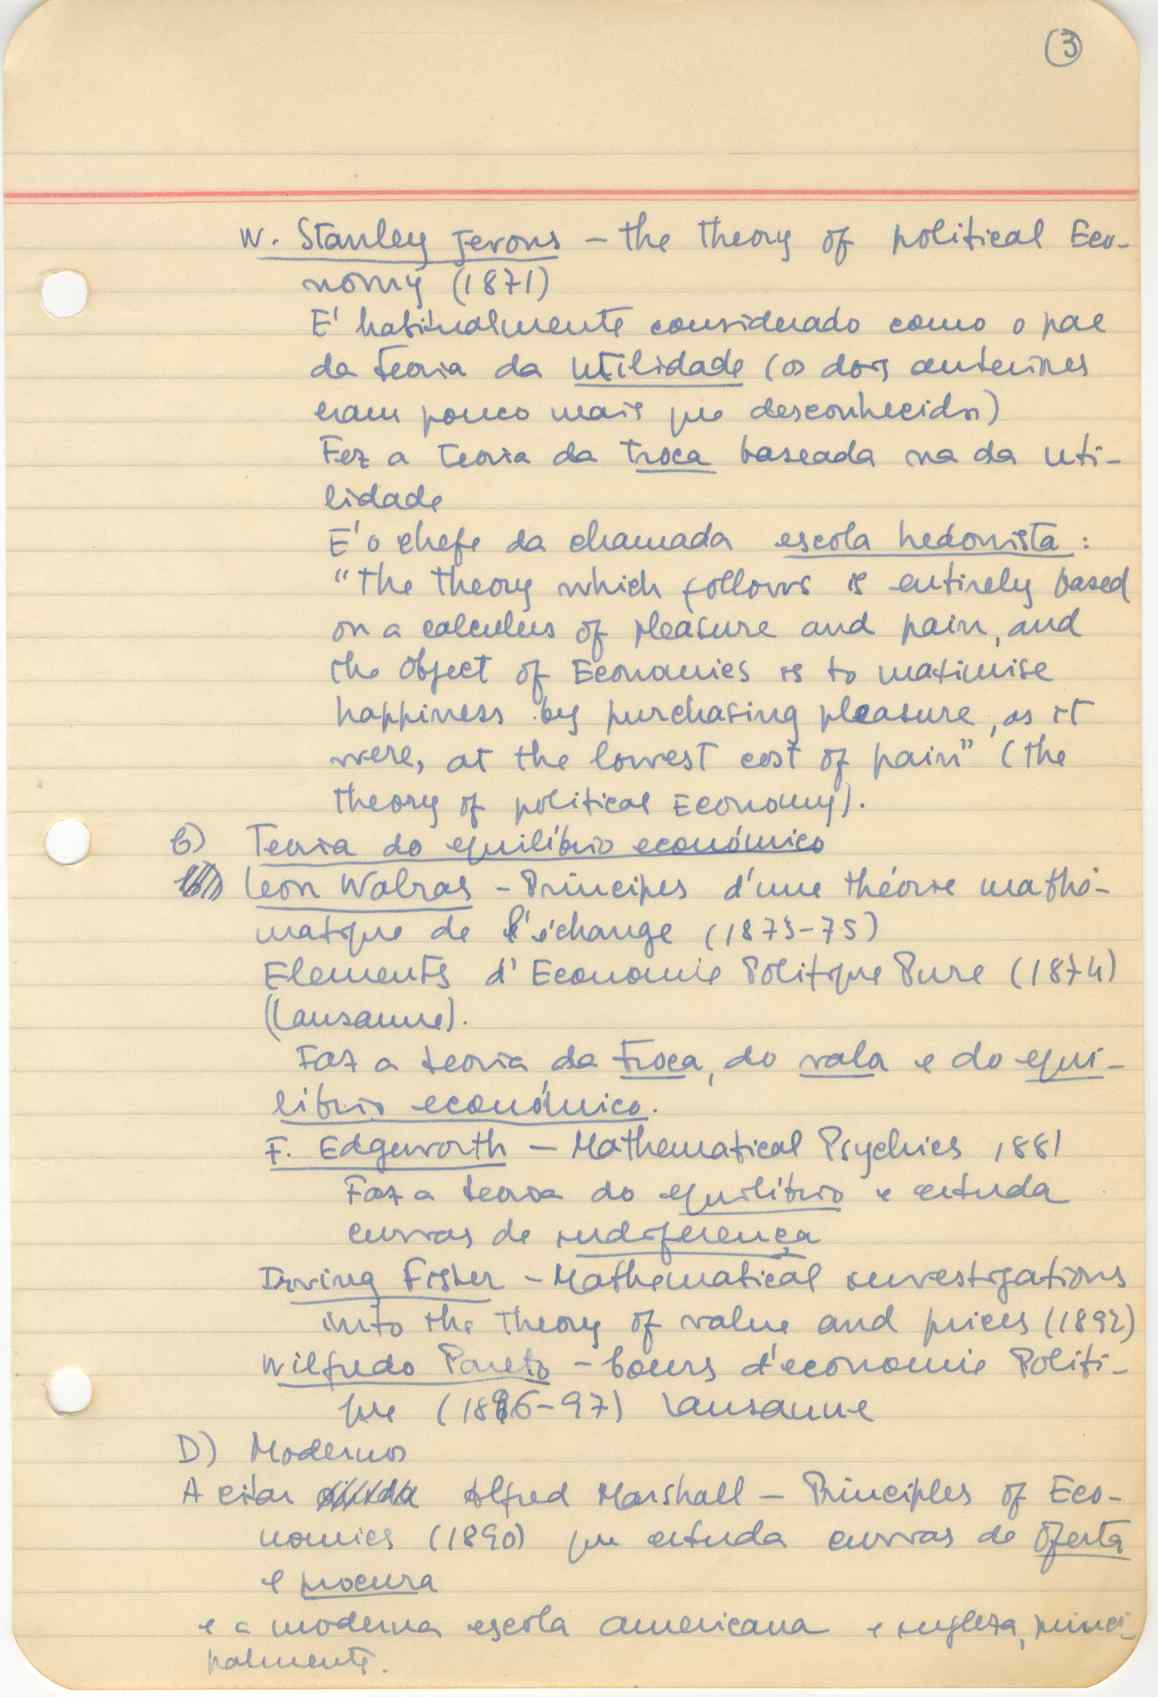 3
W. Stanley Jevons – the theory of political Eco-
nomy (1871)
E' habitualmente considerado como o pae
da teoria da utilidade (os dois anteriores
eram pouco mais que desconhecidos)
Fez a teoria da troca baseada na da uti-
lidade
E' o chefe da chamada escola hedonista:
"the theory which follows is entirely based
on a calculus of pleasure and pain, and
the object of Economics is to maximise
happiness by purchasing pleasure, as it
were, at the lowest cost of pain" (the
theory of political Economy).
C) Teoria do equilíbrio económico
Leon Walras – Principes d'une théorie mathé-
matique de l'échange (1873-75)
Elements d'Economie Politique Pure (1874)
(Lausanne).
Faz a teoria da troca, do valor e do equi-
líbrio económico.
F. Edgeworth – Mathematical Psychics 1881
Faz a teoria do equilíbrio e estuda
curvas de indiferença
Irving Fisher – Mathematical investigations
into the theory of value and prices (1892)
Wilfredo Pareto – Cours d'economie Politi-
que (1896-97) Lausanne
D) Modernos
A citar Alfred Marshall – Principles of Eco-
nomics (1890) que estuda curvas de oferta
e procura
e a moderna escola americana e inglesa, princi-
palmente.